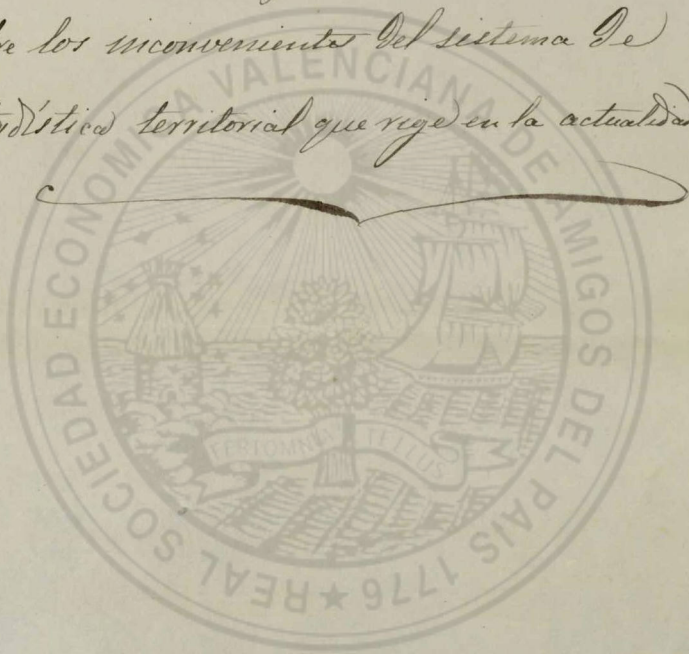 los inconvenientes del sistema de
territorial que rige en la actualidad
REAL SOCIEDAD ECONOMICA VALENCIANA DE AMIGOS DEL PAIS 1776
FERTOMNIA TELLUS